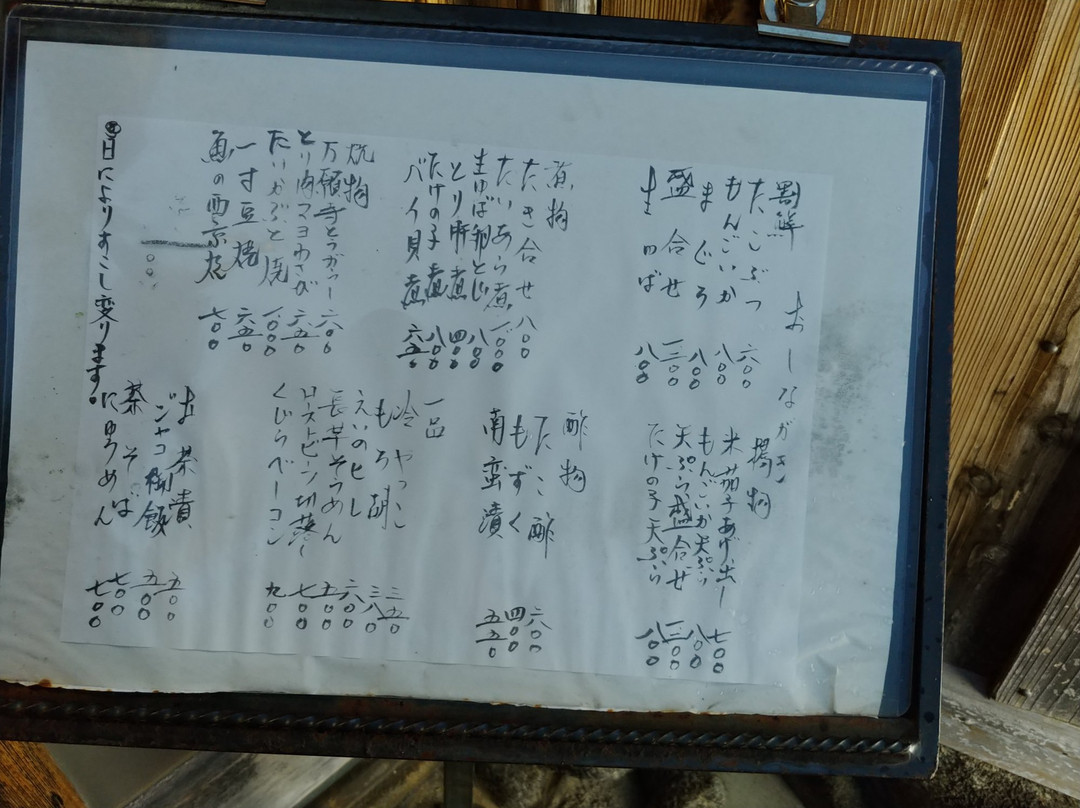 おしながき
割鮮
たこぶつ 六〇〇
もんごいか 八〇〇
まぐろ 八〇〇
盛合せ 一三〇〇
生ゆば 八〇〇
揚物
米茄子あげ出し 七〇〇
もんごいか天ぷら 八〇〇
天ぷら盛合せ 一三〇〇
たけの子天ぷら 八〇〇
煮物
たき合せ 八〇〇
たいあら煮 一〇〇〇
生ゆば卵とじ 八〇〇
とり肝煮 四〇〇
たけの子煮 八〇〇
バイ貝煮 六五〇
酢物
たこ酢 六〇〇
もずく 四〇〇
南蛮漬 五五〇
焼物
万願寺とうがらし 六〇〇
とり肉マヨわさび 六五〇
たいかぶと焼 一〇〇〇
一寸豆焼 六五〇
魚の西京焼 七〇〇
一品
冷やっこ 三五〇
もろ胡 三八〇
えいのヒレ 六〇〇
長芋そうめん 五〇〇
ローストビーフ切落し 七〇〇
くじらベーコン 九〇〇
お茶漬 五〇〇
ジャコ御飯 五〇〇
茶そば 七〇〇
にゅうめん 七〇〇
㊟日によりすこし変ります。